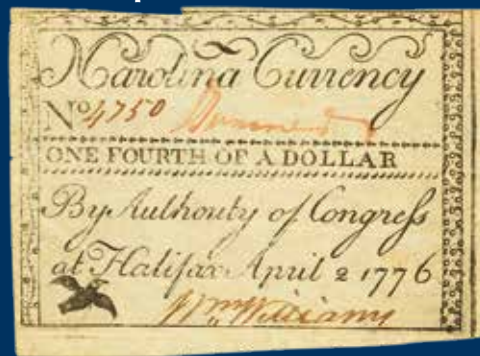 N Carolina Currency
No 4750
ONE FOURTH OF A DOLLAR
By Authority of Congress
at Halifax April 2 1776
Wm Williams